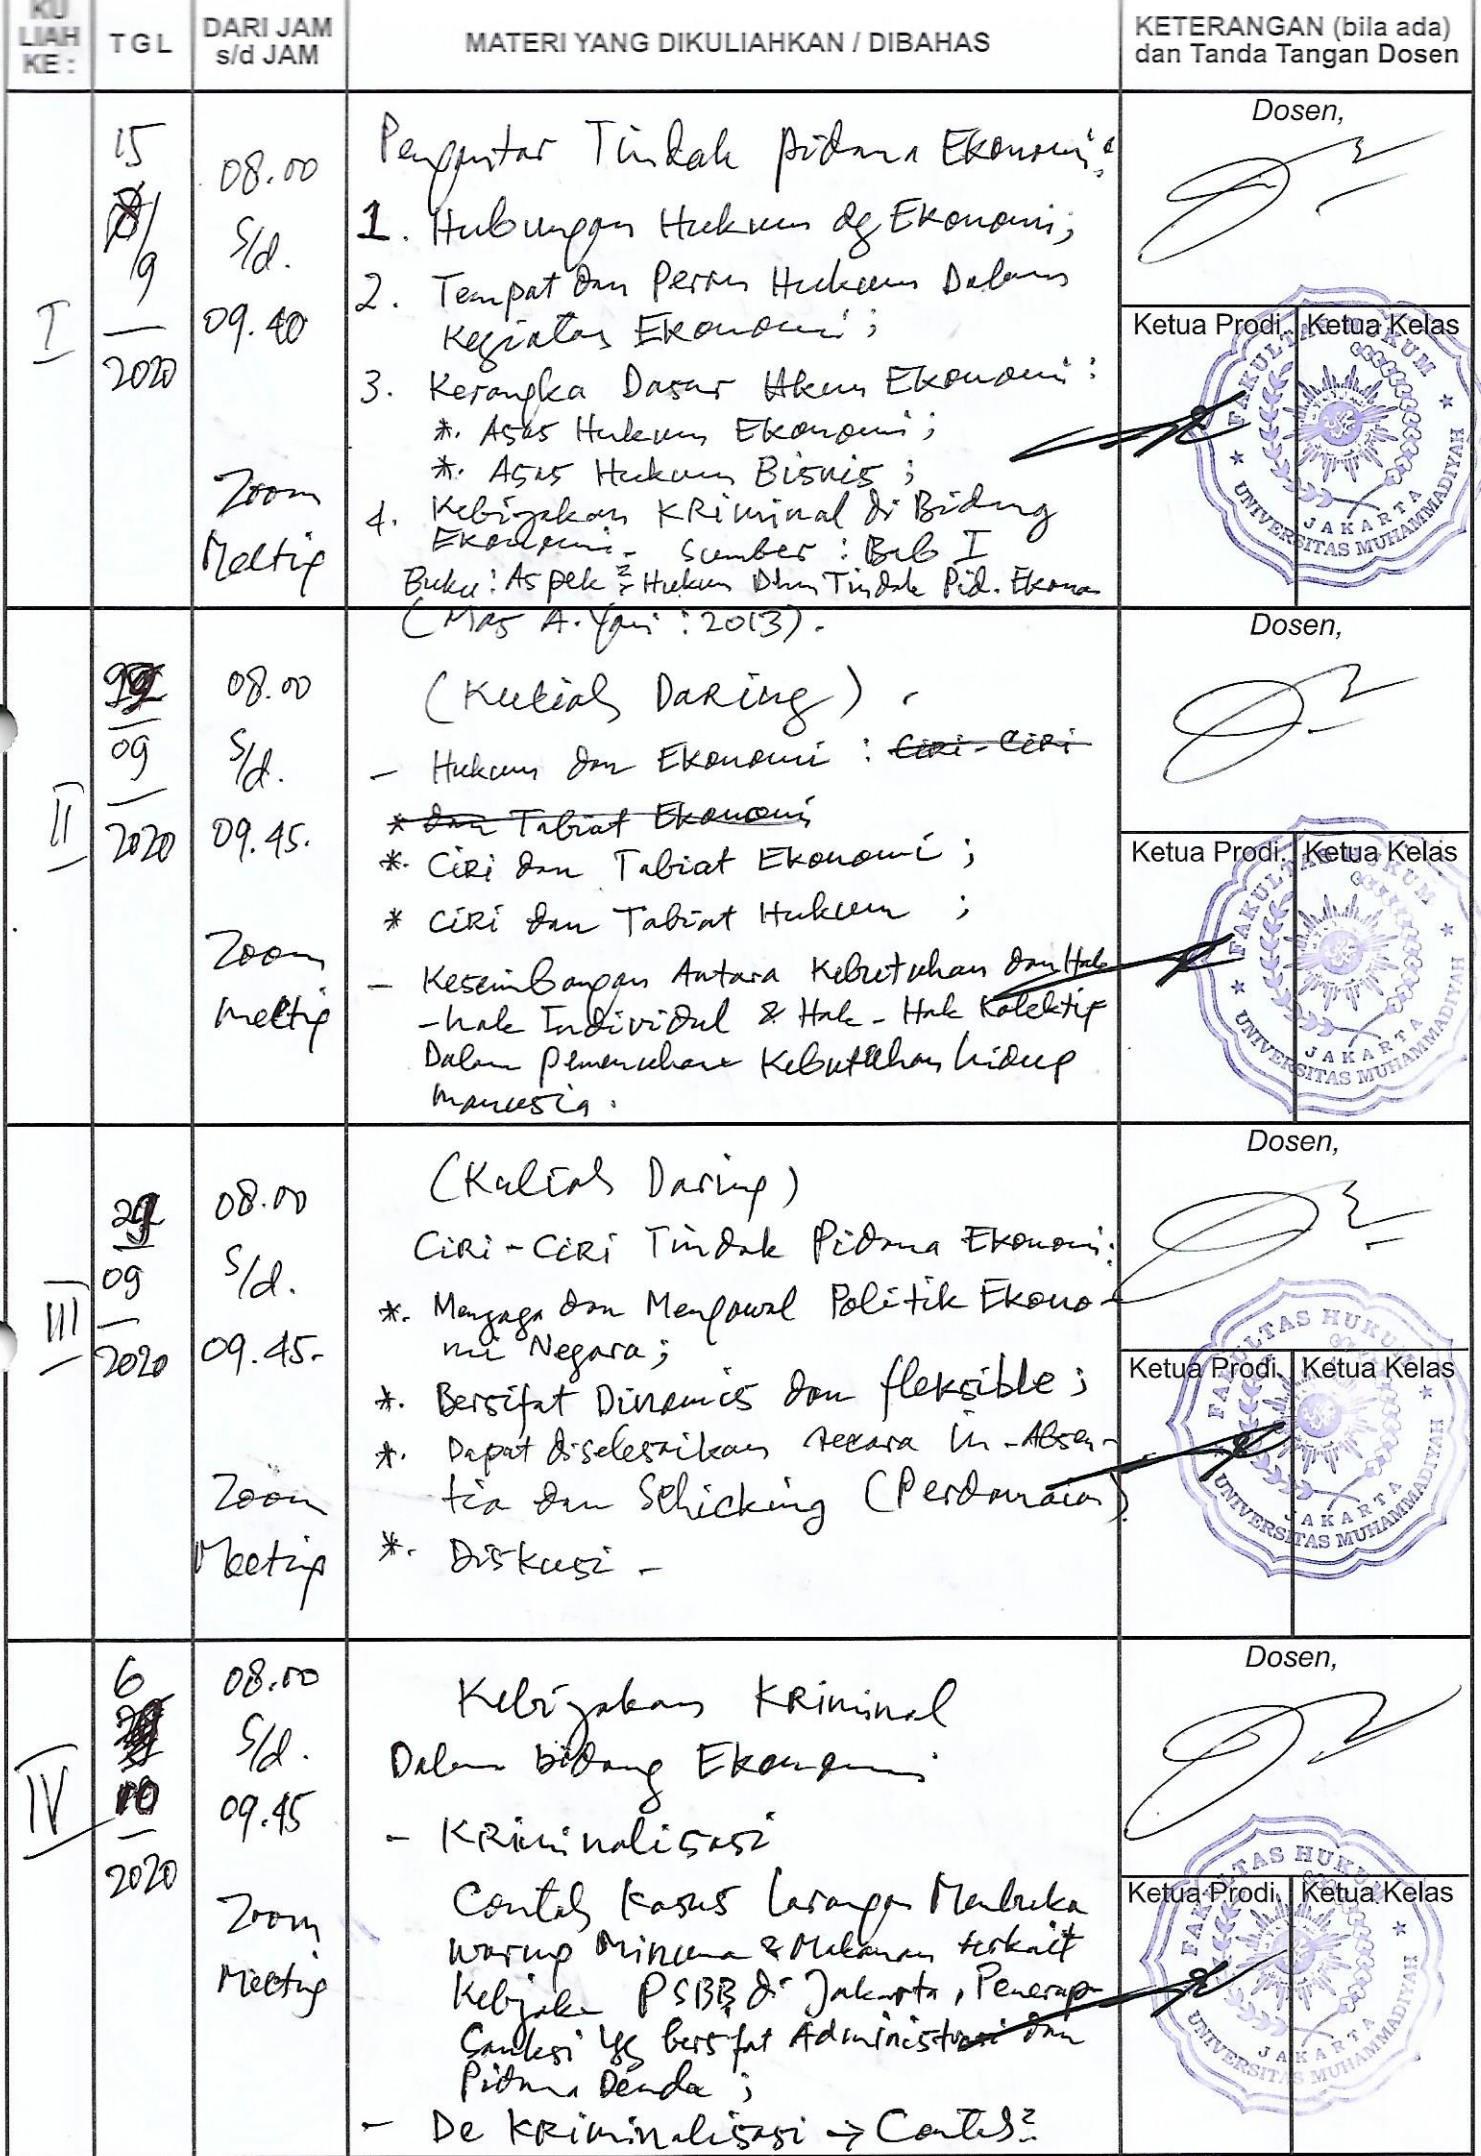 KU
LIAH
KE :
TGL
DARI JAM
s/d JAM
MATERI YANG DIKULIAHKAN / DIBAHAS
KETERANGAN (bila ada)
dan Tanda Tangan Dosen
I
15
/9
2020
08.00
s/d.
09.40
Zoom
Meeting
Pengantar Tindak pidana Ekonomi:
1. Hubungan Hukum dg Ekonomi;
2. Tempat dan Peran Hukum Dalam
Kegiatan Ekonomi;
3. Kerangka Dasar Hkum Ekonomi:
*. Asas Hukum Ekonomi;
*. Asas Hukum Bisnis;
4. Kebijakan KRiminal di Bidang
Ekonomi- Sumber : Bab I
Buku: Aspek2 Hukum Dlm Tindak Pid. Ekonomi
(Mas A. Yani : 2013).
Dosen,
Ketua Prodi. Ketua Kelas
FAKULTAS HUKUM
UNIVERSITAS MUHAMMADIYAH
JAKARTA
II
09
2020
08.00
s/d.
09.45.
Zoom
meeting
(Kuliah Daring)
- Hukum dan Ekonomi : Ciri-Ciri
* dan Tabiat Ekonomi
*. Ciri dan Tabiat Ekonomi;
* Ciri dan Tabiat Hukum ;
- Keseimbangan Antara Kebutuhan dan Hak
-hak Individul & Hak-Hak Kolektif
Dalam pemenuhan Kebutuhan hidup
manusia.
Dosen,
Ketua Prodi. Ketua Kelas
FAKULTAS HUKUM
UNIVERSITAS MUHAMMADIYAH
JAKARTA
III
09
2020
08.00
s/d.
09.45-
Zoom
Meeting
(Kuliah Daring)
Ciri-Ciri Tindak Pidana Ekonomi:
*. Menjaga dan Mengawal Politik Ekono-
mi Negara;
*. Bersifat Dinamis dan fleksible;
*. Dapat diselesaikan secara in-Absen-
tia dan Schicking (Perdamaian)
*. Diskusi -
Dosen,
Ketua Prodi. Ketua Kelas
FAKULTAS HUKUM
UNIVERSITAS MUHAMMADIYAH
JAKARTA
IV
6
10
2020
08.00
s/d.
09.45
Zoom
Meeting
Kebijakan KRiminal
Dalam bidang Ekonomi
- KRiminalisasi
Contoh Kasus larangan Membuka
warung Minuman & Makanan terkait
Kebijakan PSBB di Jakarta, Penerap-
Sanksi yg bersifat Administrasi dan
Pidana Denda ;
- De KRiminalisasi → Contoh?
Dosen,
Ketua Prodi. Ketua Kelas
FAKULTAS HUKUM
UNIVERSITAS MUHAMMADIYAH
JAKARTA